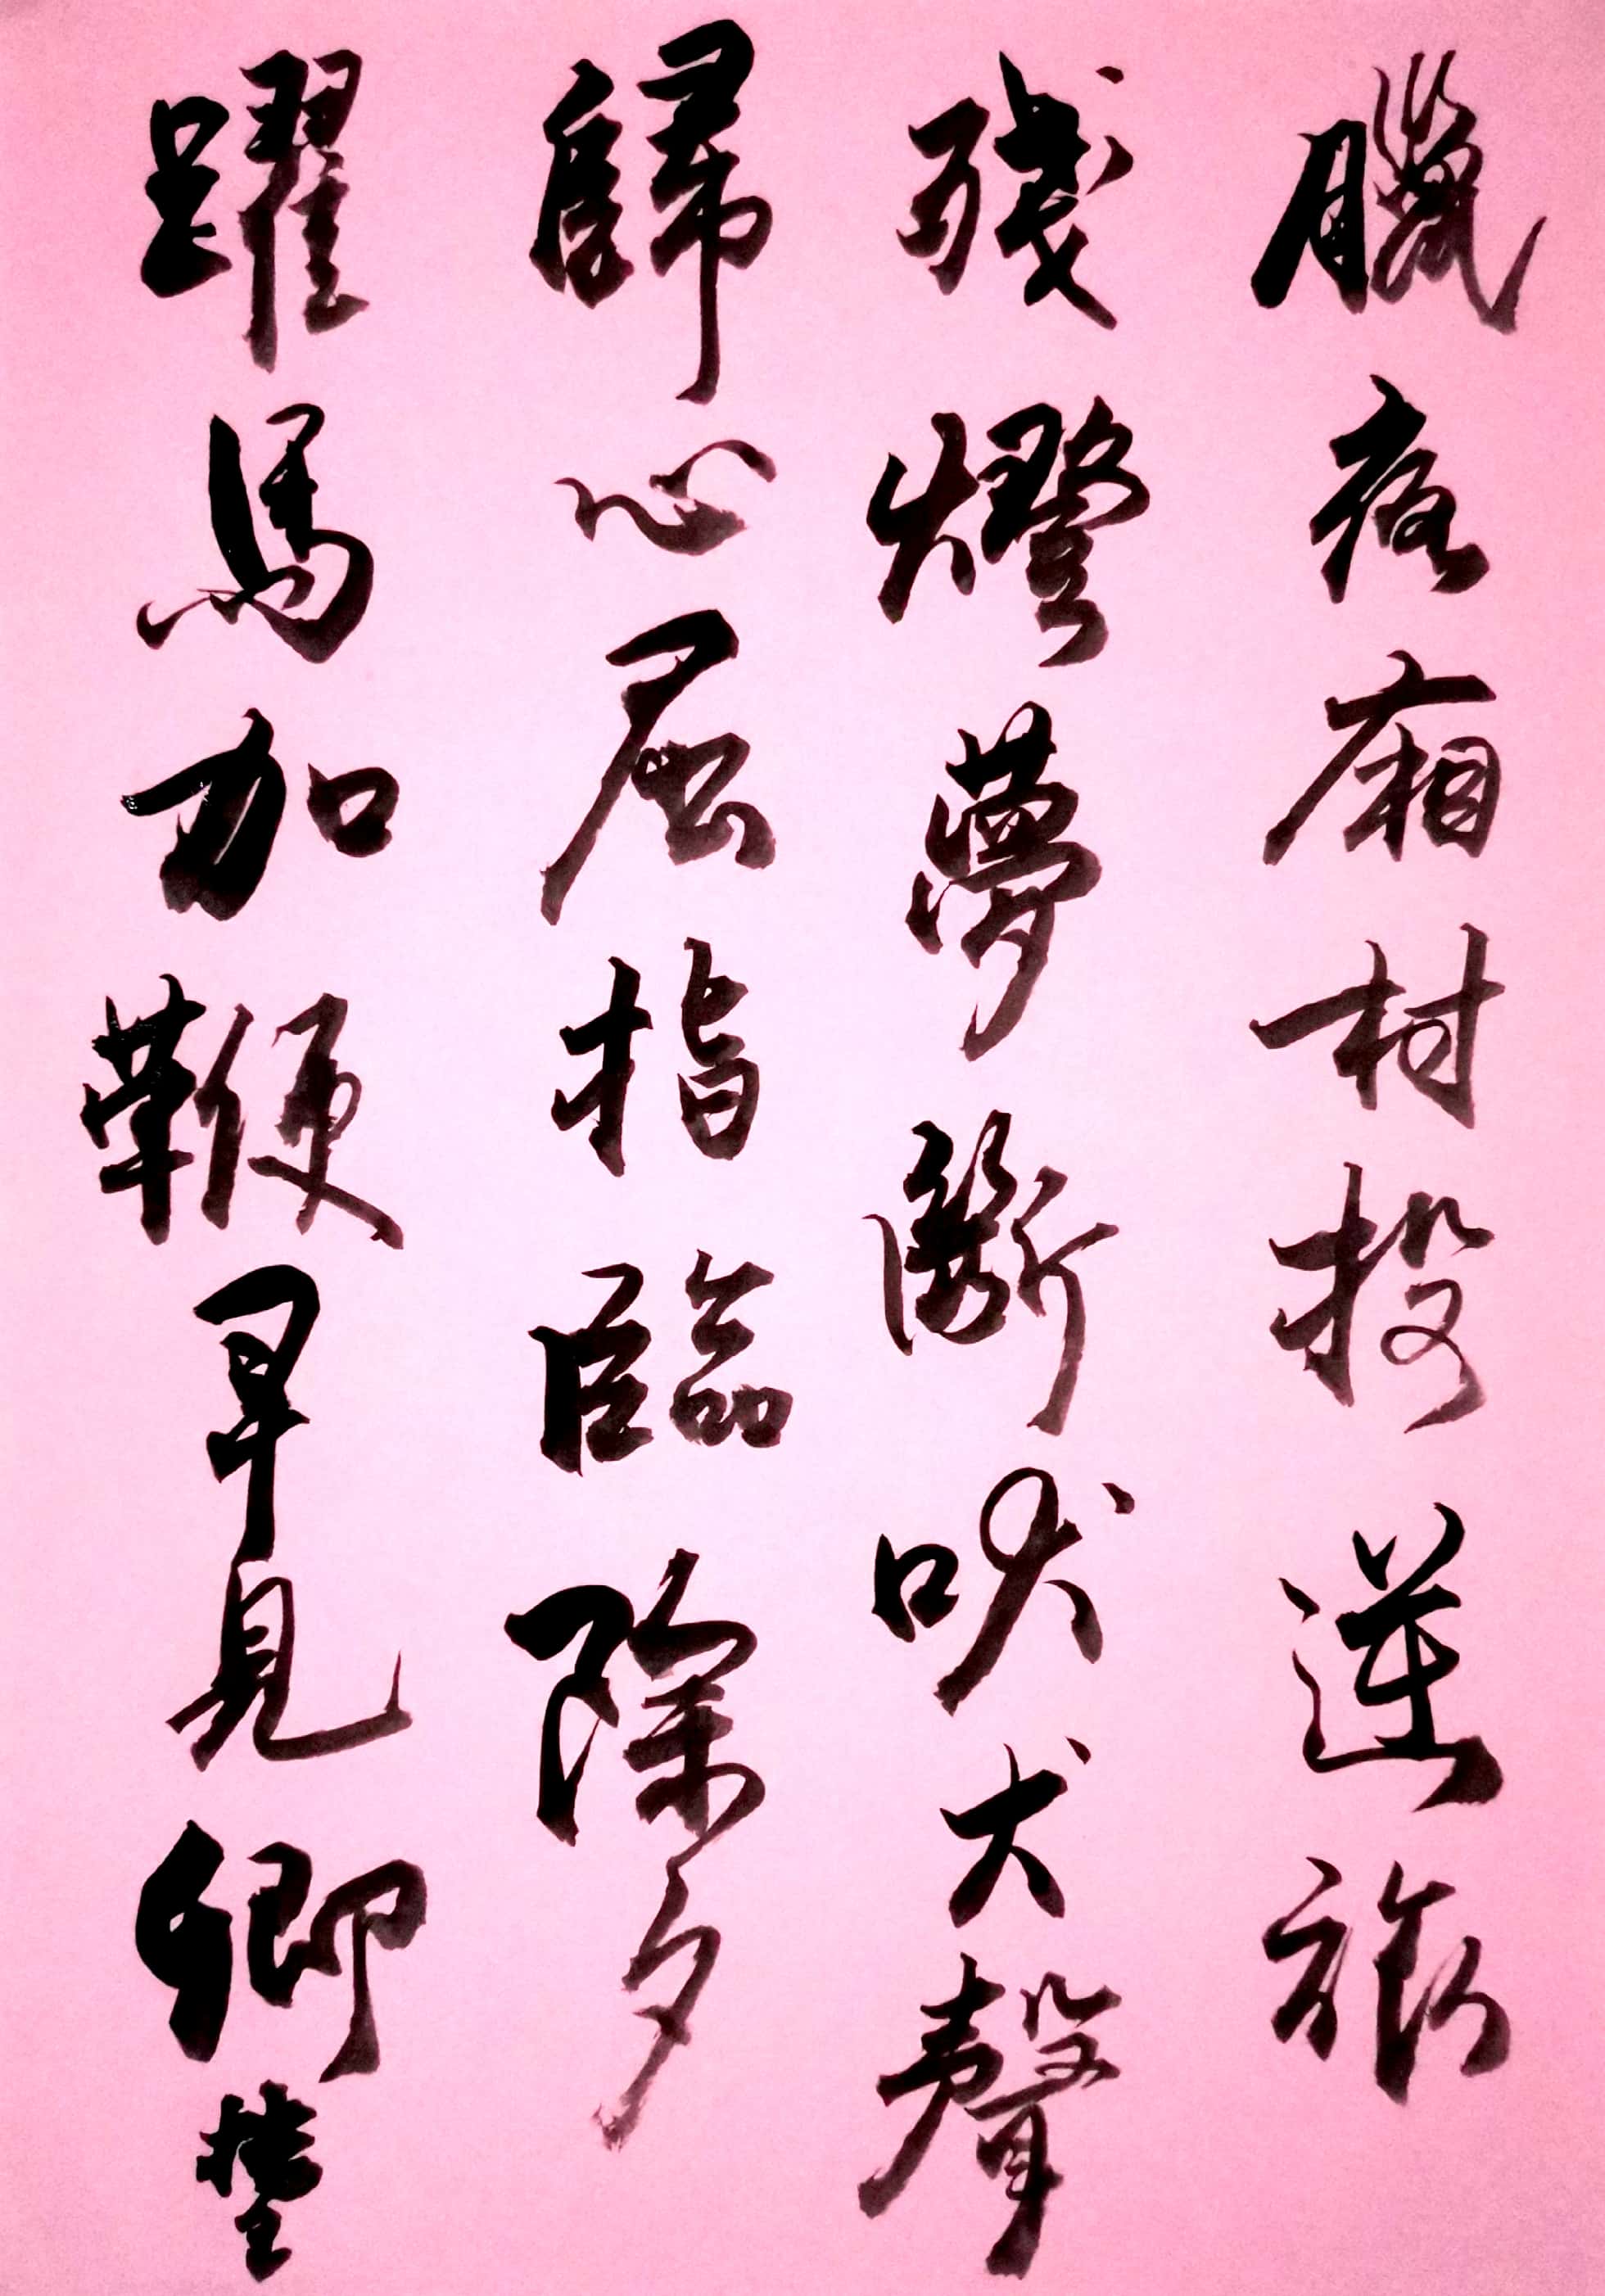 臘夜廂村投逆旅
殘燈夢斷吠犬聲
歸心屈指臨除夕
躍馬加鞭早見卿